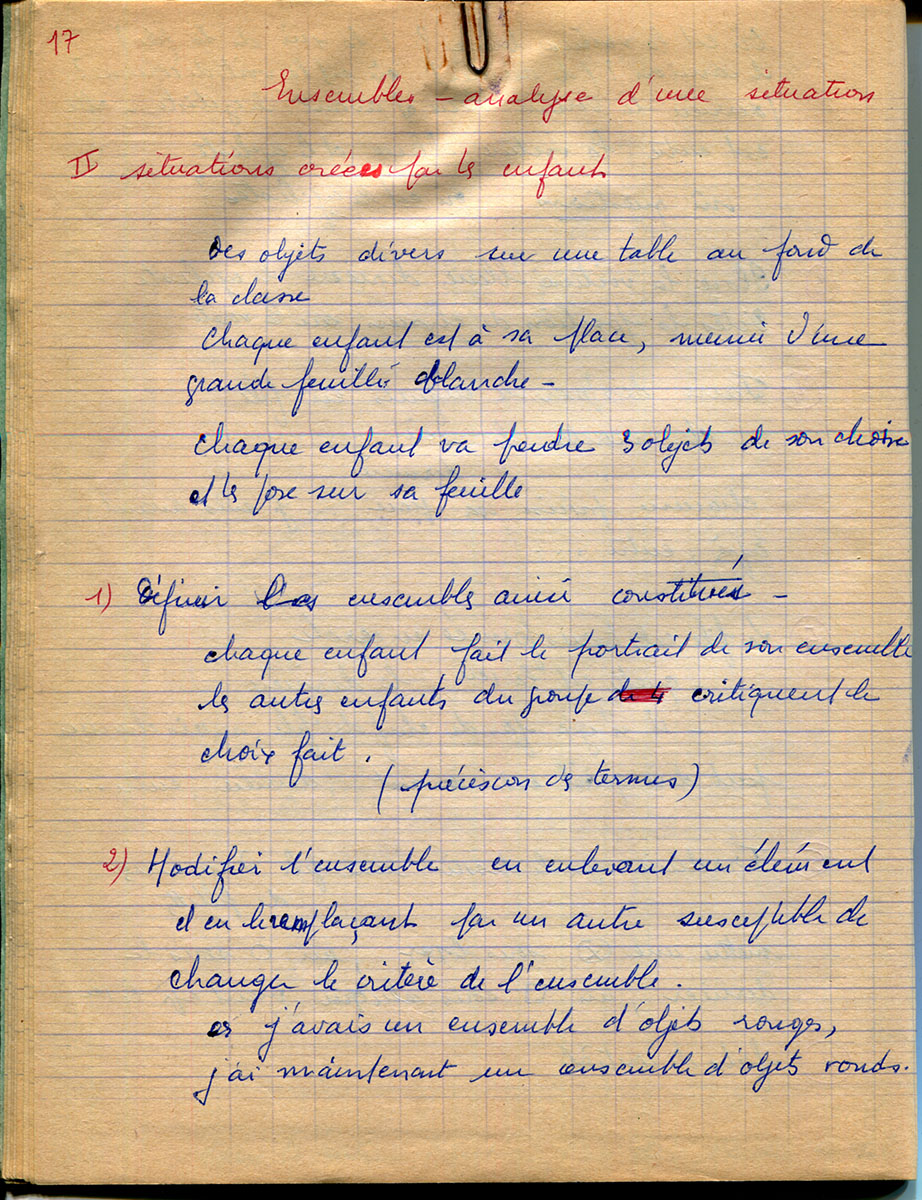 17
Ensembles - analyse d'une situation
II situations créées par les enfants
Des objets divers sur une table au fond de
la classe
Chaque enfant est à sa place, muni d'une
grande feuille blanche -
Chaque enfant va pendre 3 objets de son choix
et les pose sur sa feuille
1) Définir les ensembles ainsi constitués -
chaque enfant fait le portrait de son ensemble
les autres enfants du groupe critiquent le
choix fait.
(précision des termes)
2) Modifier l'ensemble en enlevant un élément
et en le remplaçant par un autre susceptible de
changer le critère de l'ensemble.
j'avais un ensemble d'objets rouges,
j'ai maintenant un ensemble d'objets ronds.